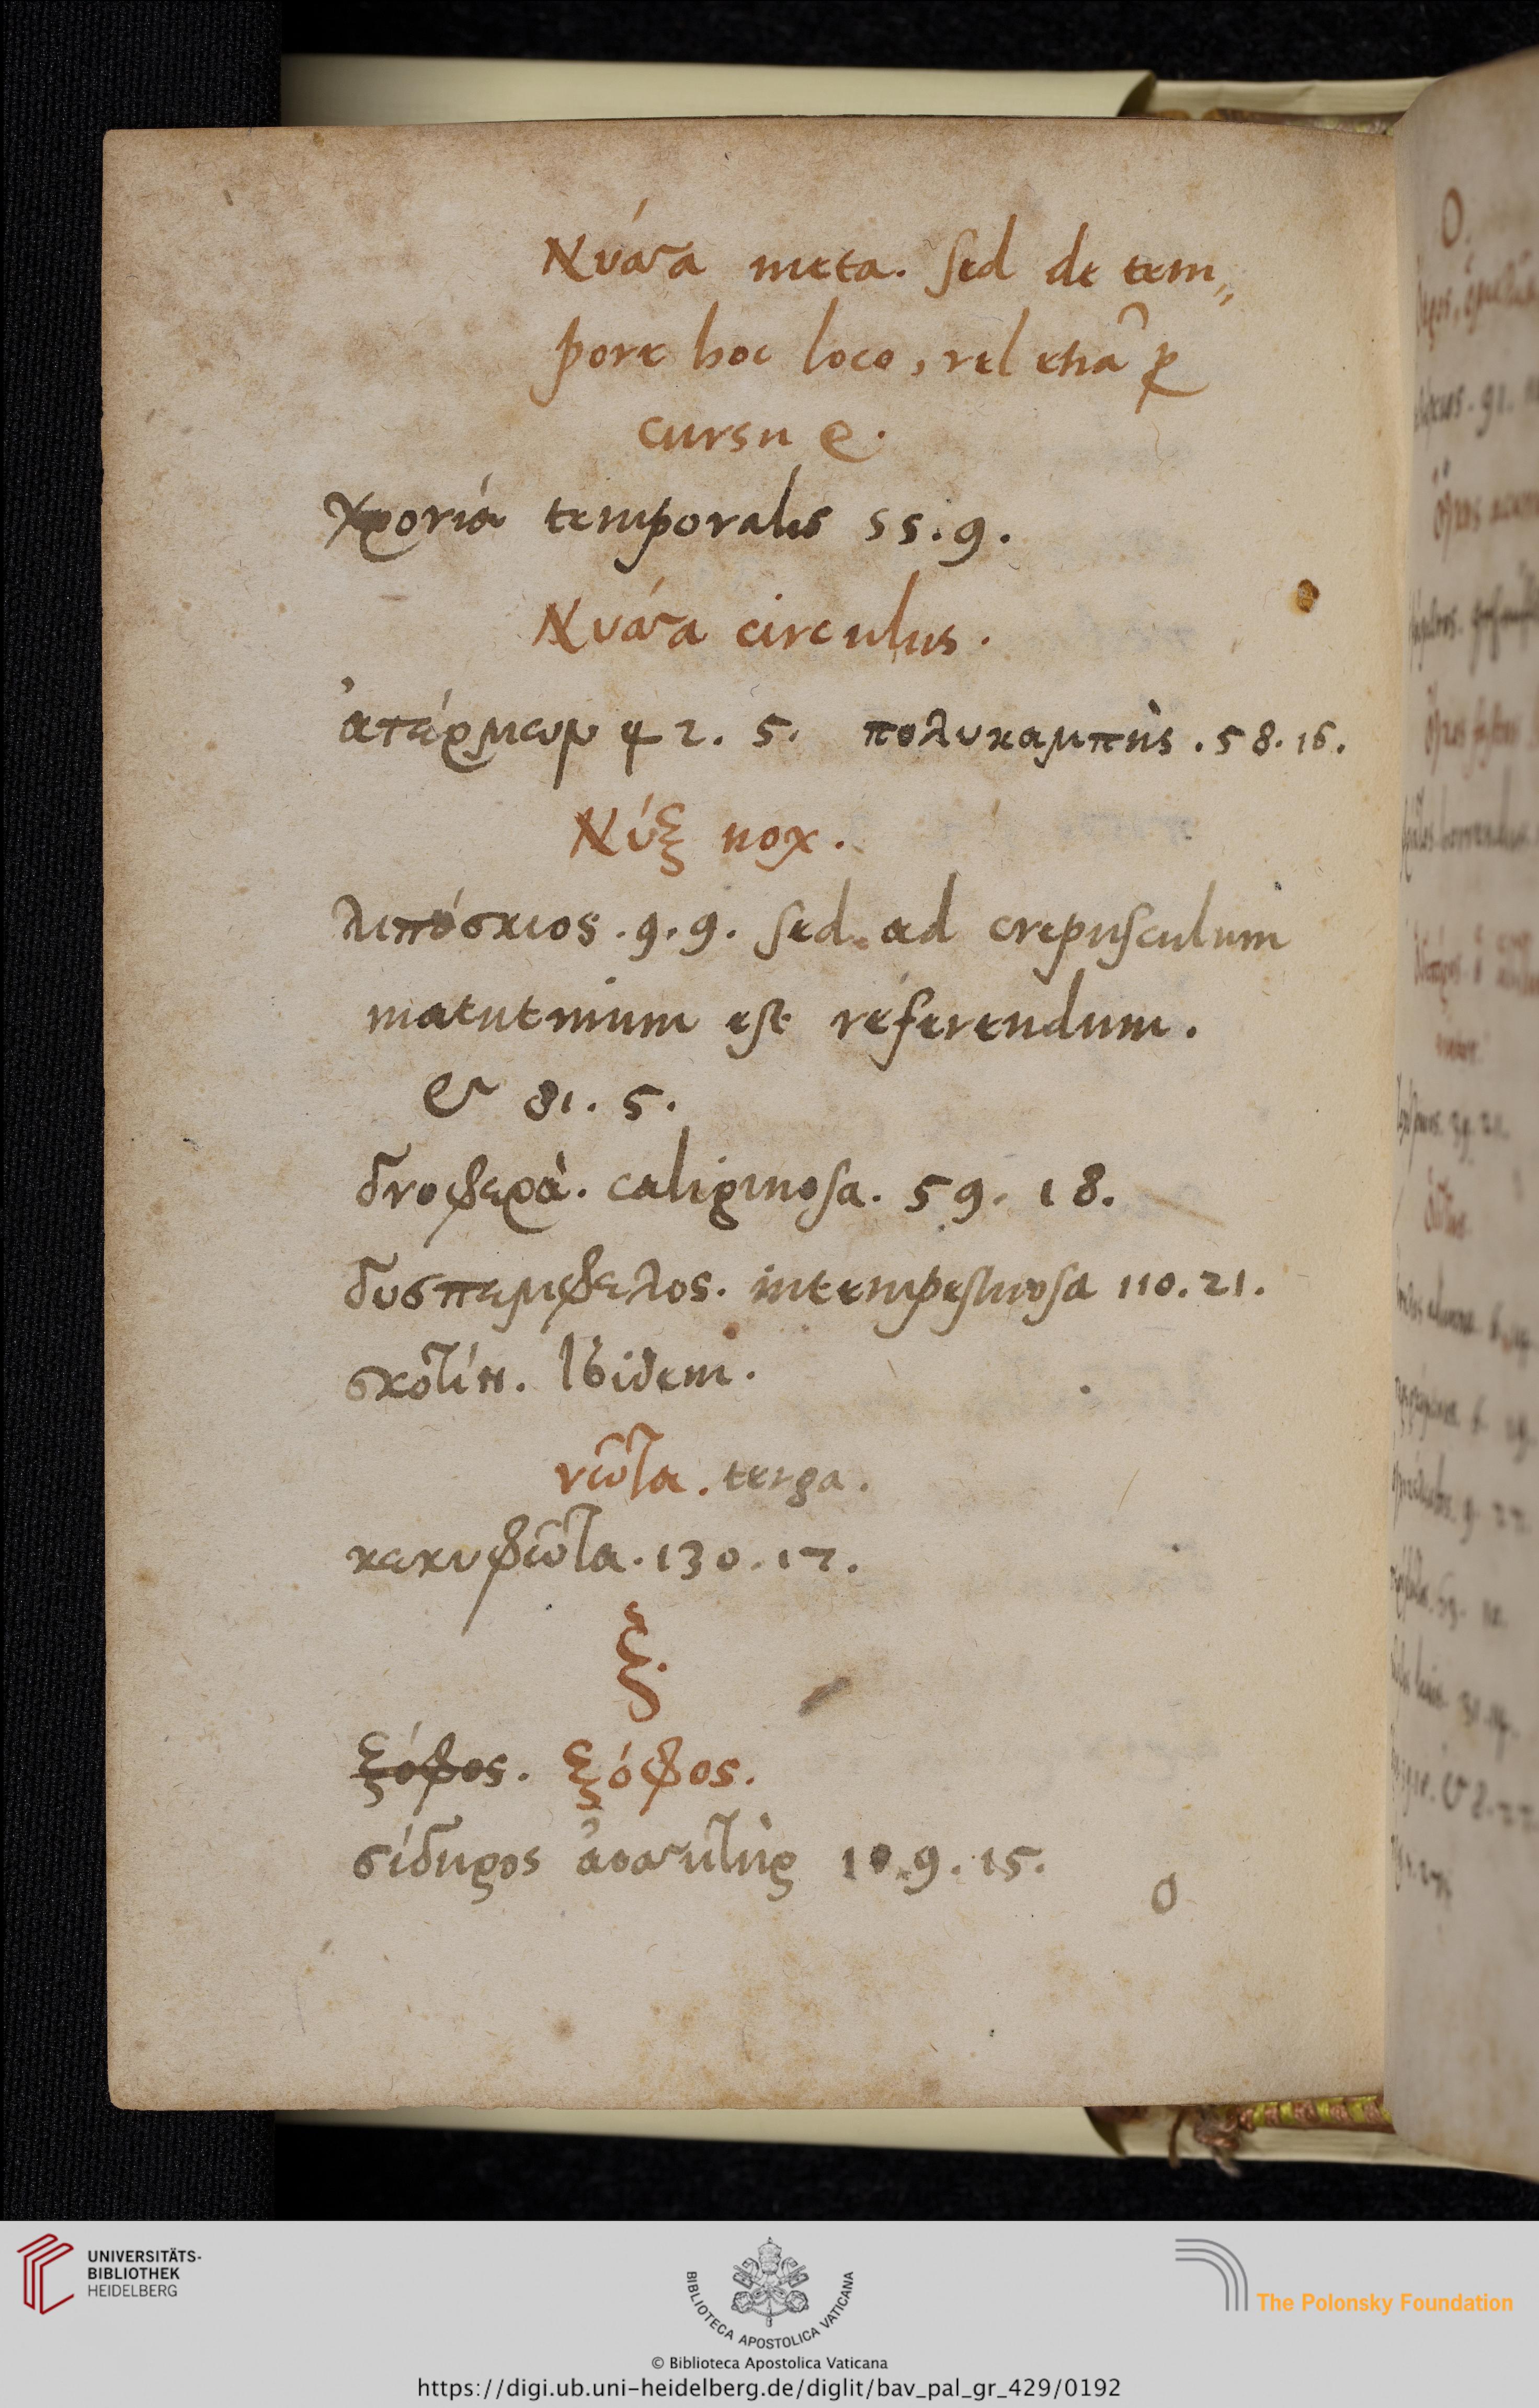 Νύσσα meta. sed de tem„
pore hoc loco, vel etiã p
cursu e.
χρονιά temporalis 55.9.
Νύσσα circulus.
ἀτέρμων 42. 5. πολυκαμπὴς. 58. 16.
Νύξ nox.
λιπόσκιος. 9. 9. sed ad crepusculum
matutinum est referendum.
& 81. 5.
δνοφερὰ. caliginosa. 59. 18.
δυσπεμφελος. intempestiuosa 110. 21.
σκοτίη. Ibidem.
νῶτα. terga.
κεκυφῶτα. 130. 17.
ξ.
ξόφος. ξόφος.
σίδηρος 109. 15.
O
O.
UNIVERSITÄTS-
BIBLIOTHEK
HEIDELBERG
BIBLIOTECA APOSTOLICA VATICANA
The Polonsky Foundation
© Biblioteca Apostolica Vaticana
https://digi.ub.uni-heidelberg.de/diglit/bav_pal_gr_429/0192